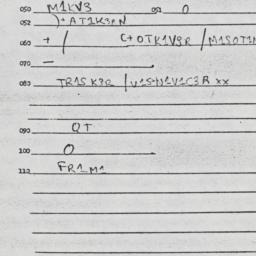 050 M1KV3 052 0
052 )+AT1K3RN
060 + / C+OTK1V3R / M1SOT1N
070 —
080 TR1SK3R / V1S+N1V1C3R xx
090 QT
100 O
110 FR1M1